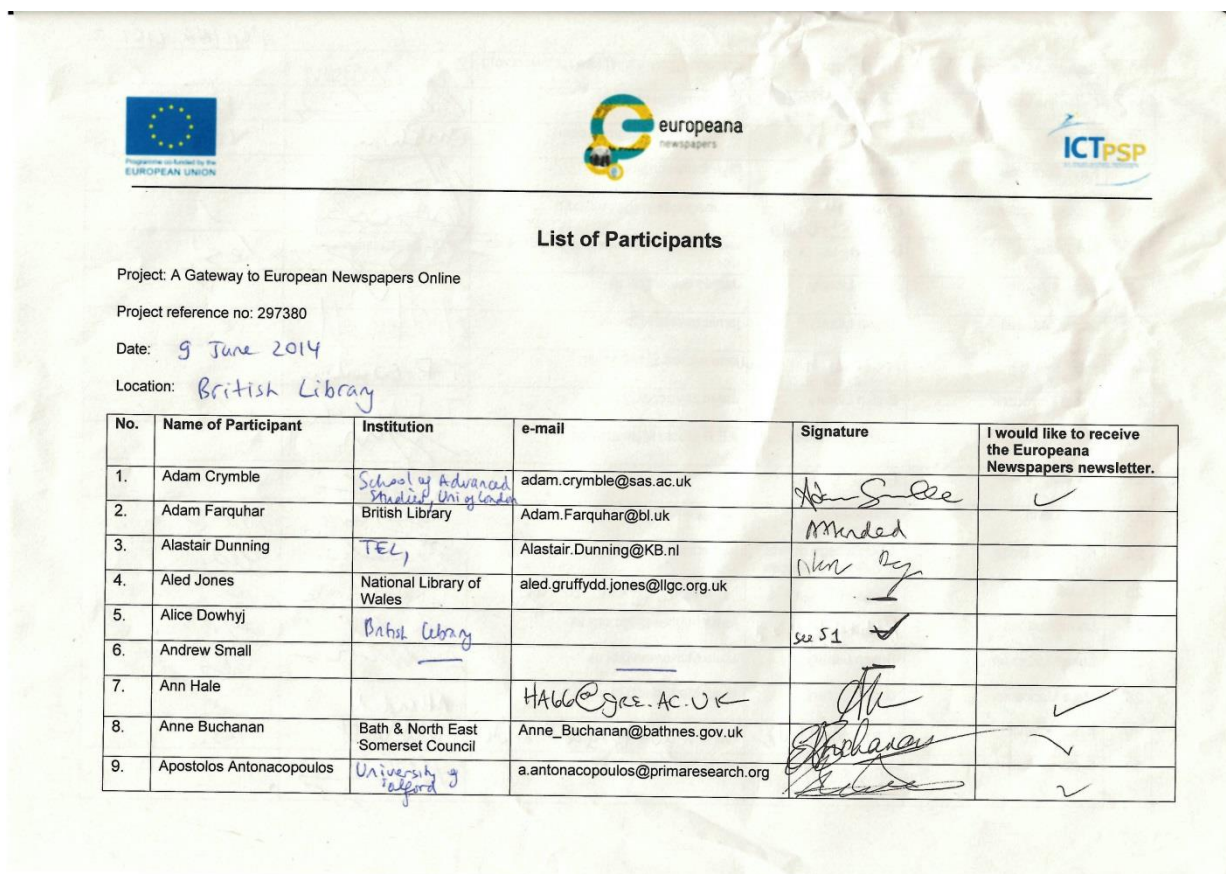 Programme co-funded by the
EUROPEAN UNION
europeana
newspapers
ICTPSP
List of Participants
Project: A Gateway to European Newspapers Online
Project reference no: 297380
Date: 9 June 2014
Location: British Library
No. Name of Participant Institution e-mail Signature I would like to receive
the Europeana
Newspapers newsletter.
1. Adam Crymble School of Advanced adam.crymble@sas.ac.uk
Studies, Uni of London
2. Adam Farquhar British Library Adam.Farquhar@bl.uk Attended
3. Alastair Dunning TEL, Alastair.Dunning@KB.nl
4. Aled Jones National Library of aled.gruffydd.jones@llgc.org.uk
Wales
5. Alice Dowhyj British Library see 51
6. Andrew Small
7. Ann Hale HA66@gre.AC.UK
8. Anne Buchanan Bath & North East Anne_Buchanan@bathnes.gov.uk Buchanan
Somerset Council
9. Apostolos Antonacopoulos University of a.antonacopoulos@primaresearch.org
Salford